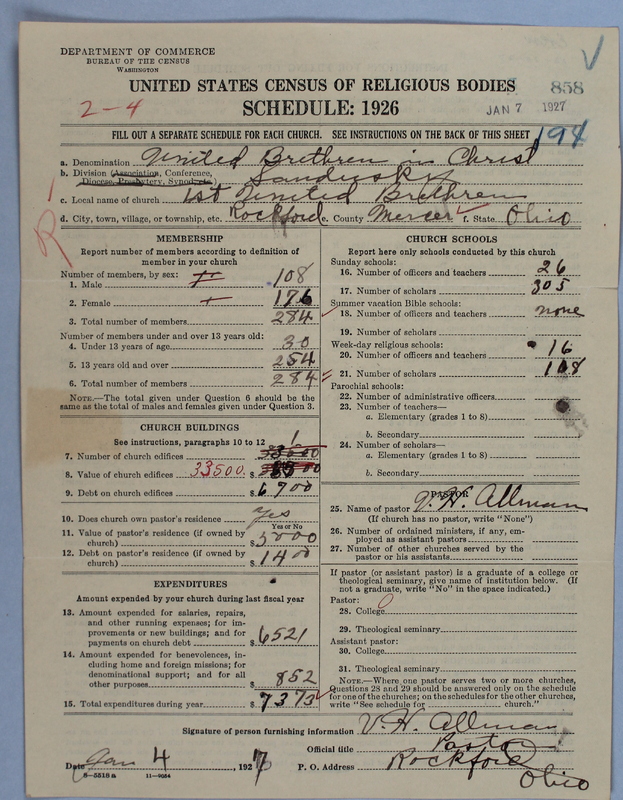 DEPARTMENT OF COMMERCE
BUREAU OF THE CENSUS
WASHINGTON
UNITED STATES CENSUS OF RELIGIOUS BODIES
SCHEDULE: 1926
2-4
858
JAN 7 1927
FILL OUT A SEPARATE SCHEDULE FOR EACH CHURCH. SEE INSTRUCTIONS ON THE BACK OF THIS SHEET
a. Denomination United Brethren in Christ
b. Division (Association, Conference, Diocese, Presbytery, Synod, etc.) Sandusky
c. Local name of church 1st United Brethren
d. City, town, village, or township, etc. Rockford e. County Mercer f. State Ohio
R
MEMBERSHIP
Report number of members according to definition of
member in your church
Number of members, by sex:
1. Male 108
2. Female 176
3. Total number of members 284
Number of members under and over 13 years old:
4. Under 13 years of age 30
5. 13 years old and over 254
6. Total number of members 284
NOTE.—The total given under Question 6 should be the
same as the total of males and females given under Question 3.
CHURCH BUILDINGS
See instructions, paragraphs 10 to 12
7. Number of church edifices 1
8. Value of church edifices 33500. $
9. Debt on church edifices $ 6900
10. Does church own pastor's residence yes
Yes or No
11. Value of pastor's residence (if owned by
church) $ 5000
12. Debt on pastor's residence (if owned by
church) $ 1400
EXPENDITURES
Amount expended by your church during last fiscal year
13. Amount expended for salaries, repairs,
and other running expenses; for im-
provements or new buildings; and for
payments on church debt $ 6521
14. Amount expended for benevolences, in-
cluding home and foreign missions; for
denominational support; and for all
other purposes $ 852
15. Total expenditures during year $ 7373
CHURCH SCHOOLS
Report here only schools conducted by this church
Sunday schools:
16. Number of officers and teachers 26
17. Number of scholars 305
Summer vacation Bible schools:
18. Number of officers and teachers none
19. Number of scholars
Week-day religious schools:
20. Number of officers and teachers 16
21. Number of scholars 108
Parochial schools:
22. Number of administrative officers
23. Number of teachers—
a. Elementary (grades 1 to 8)
b. Secondary
24. Number of scholars—
a. Elementary (grades 1 to 8)
b. Secondary
PASTOR
25. Name of pastor V. H. Allman
(If church has no pastor, write "None")
26. Number of ordained ministers, if any, em-
ployed as assistant pastors
27. Number of other churches served by the
pastor or his assistants
If pastor (or assistant pastor) is a graduate of a college or
theological seminary, give name of institution below. (If
not a graduate, write "No" in the space indicated.)
Pastor:
28. College
29. Theological seminary
Assistant pastor:
30. College
31. Theological seminary
NOTE.—Where one pastor serves two or more churches,
Questions 28 and 29 should be answered only on the schedule
for one of the churches; on the schedules for the other churches,
write "See schedule for church."
Signature of person furnishing information V. H. Allman
Official title Pastor
Date Jan 4, 1927 P. O. Address Rockford
Ohio
8-5518 a 11-9054